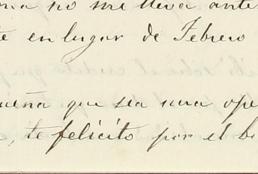 no me lleva ante
en lugar de Febrero
que sea una ope
, te felicito por el b